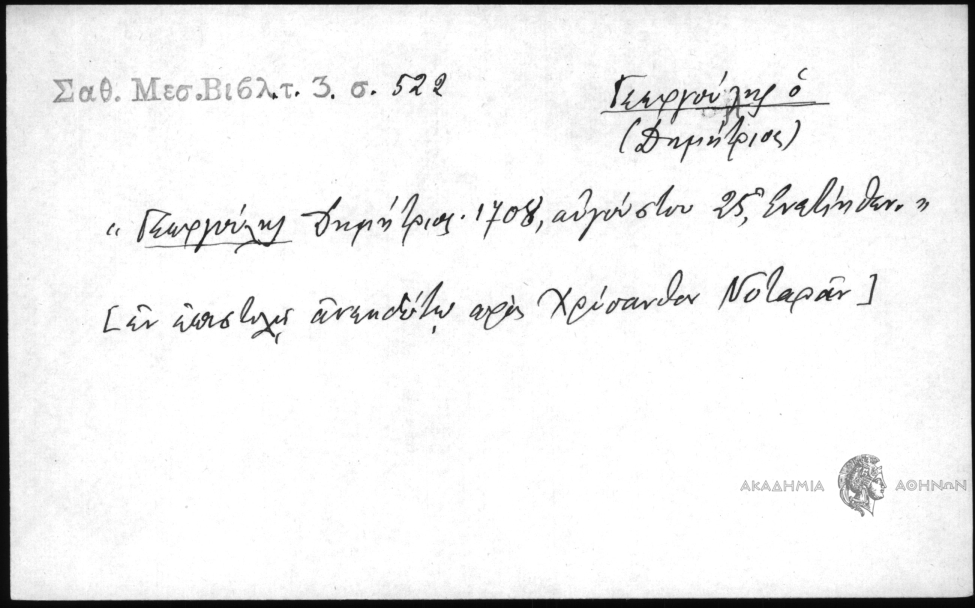 Σαθ. Μεσ. Βιβλ. τ. 3. σ. 522
Γεωργούλης ὁ
(Δημήτριος)
“ Γεωργούλης Δημήτριος. 1708, αὐγούστου 25, Ἐνετίηθεν. ”
[ἐν ἐπιστολῇ ἀνεκδότῳ πρὸς Χρύσανθον Νοταρᾶν]
ΑΚΑΔΗΜΙΑ ΑΘΗΝΩΝ